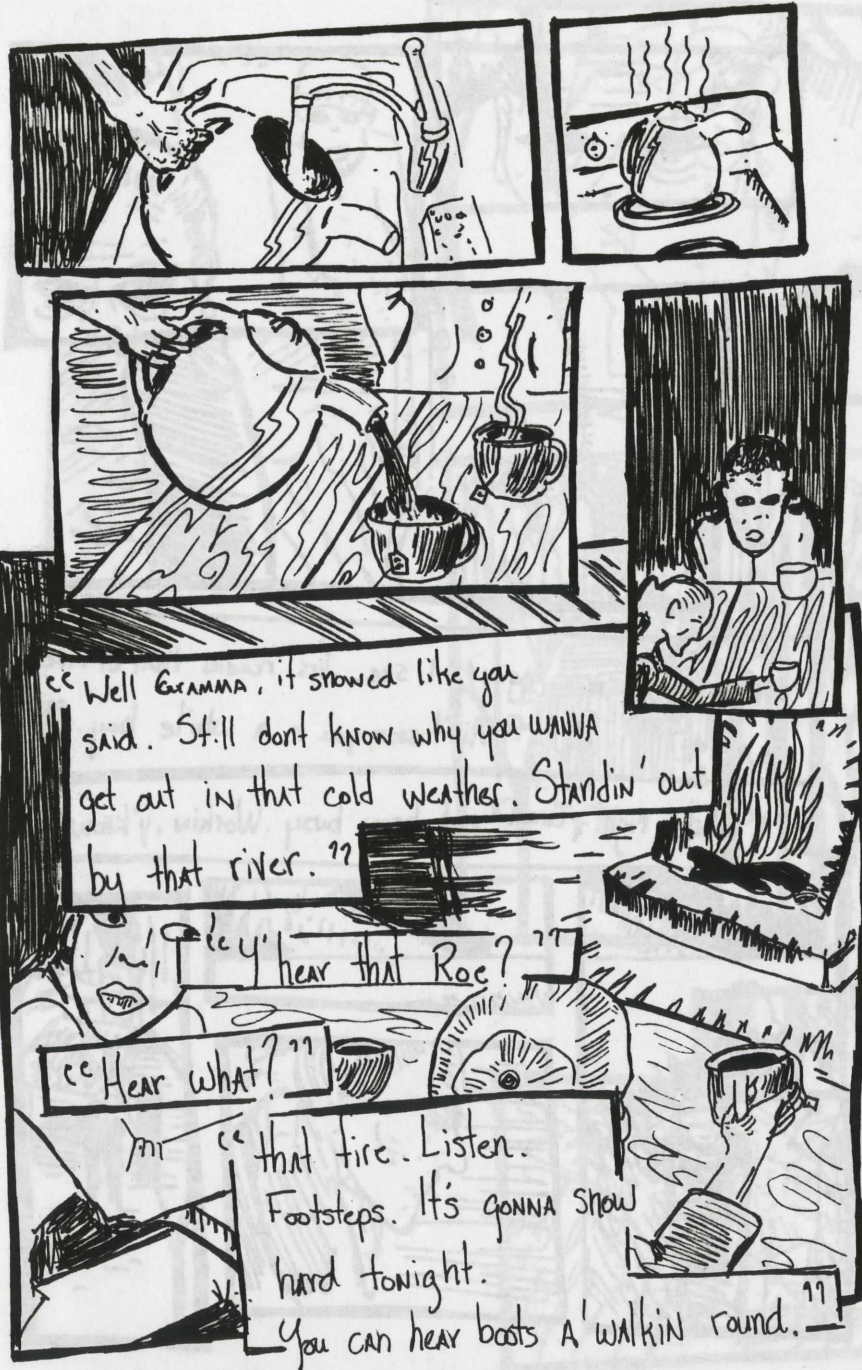 “Well GRAMMA, it snowed like you
said. Still dont know why you WANNA
get out in that cold weather. Standin' out
by that river.”
“Y' hear that Roe?”
“Hear what?”
“that fire. Listen.
Footsteps. It's gonna snow
hard tonight.
You can hear boots a' walkin round.”